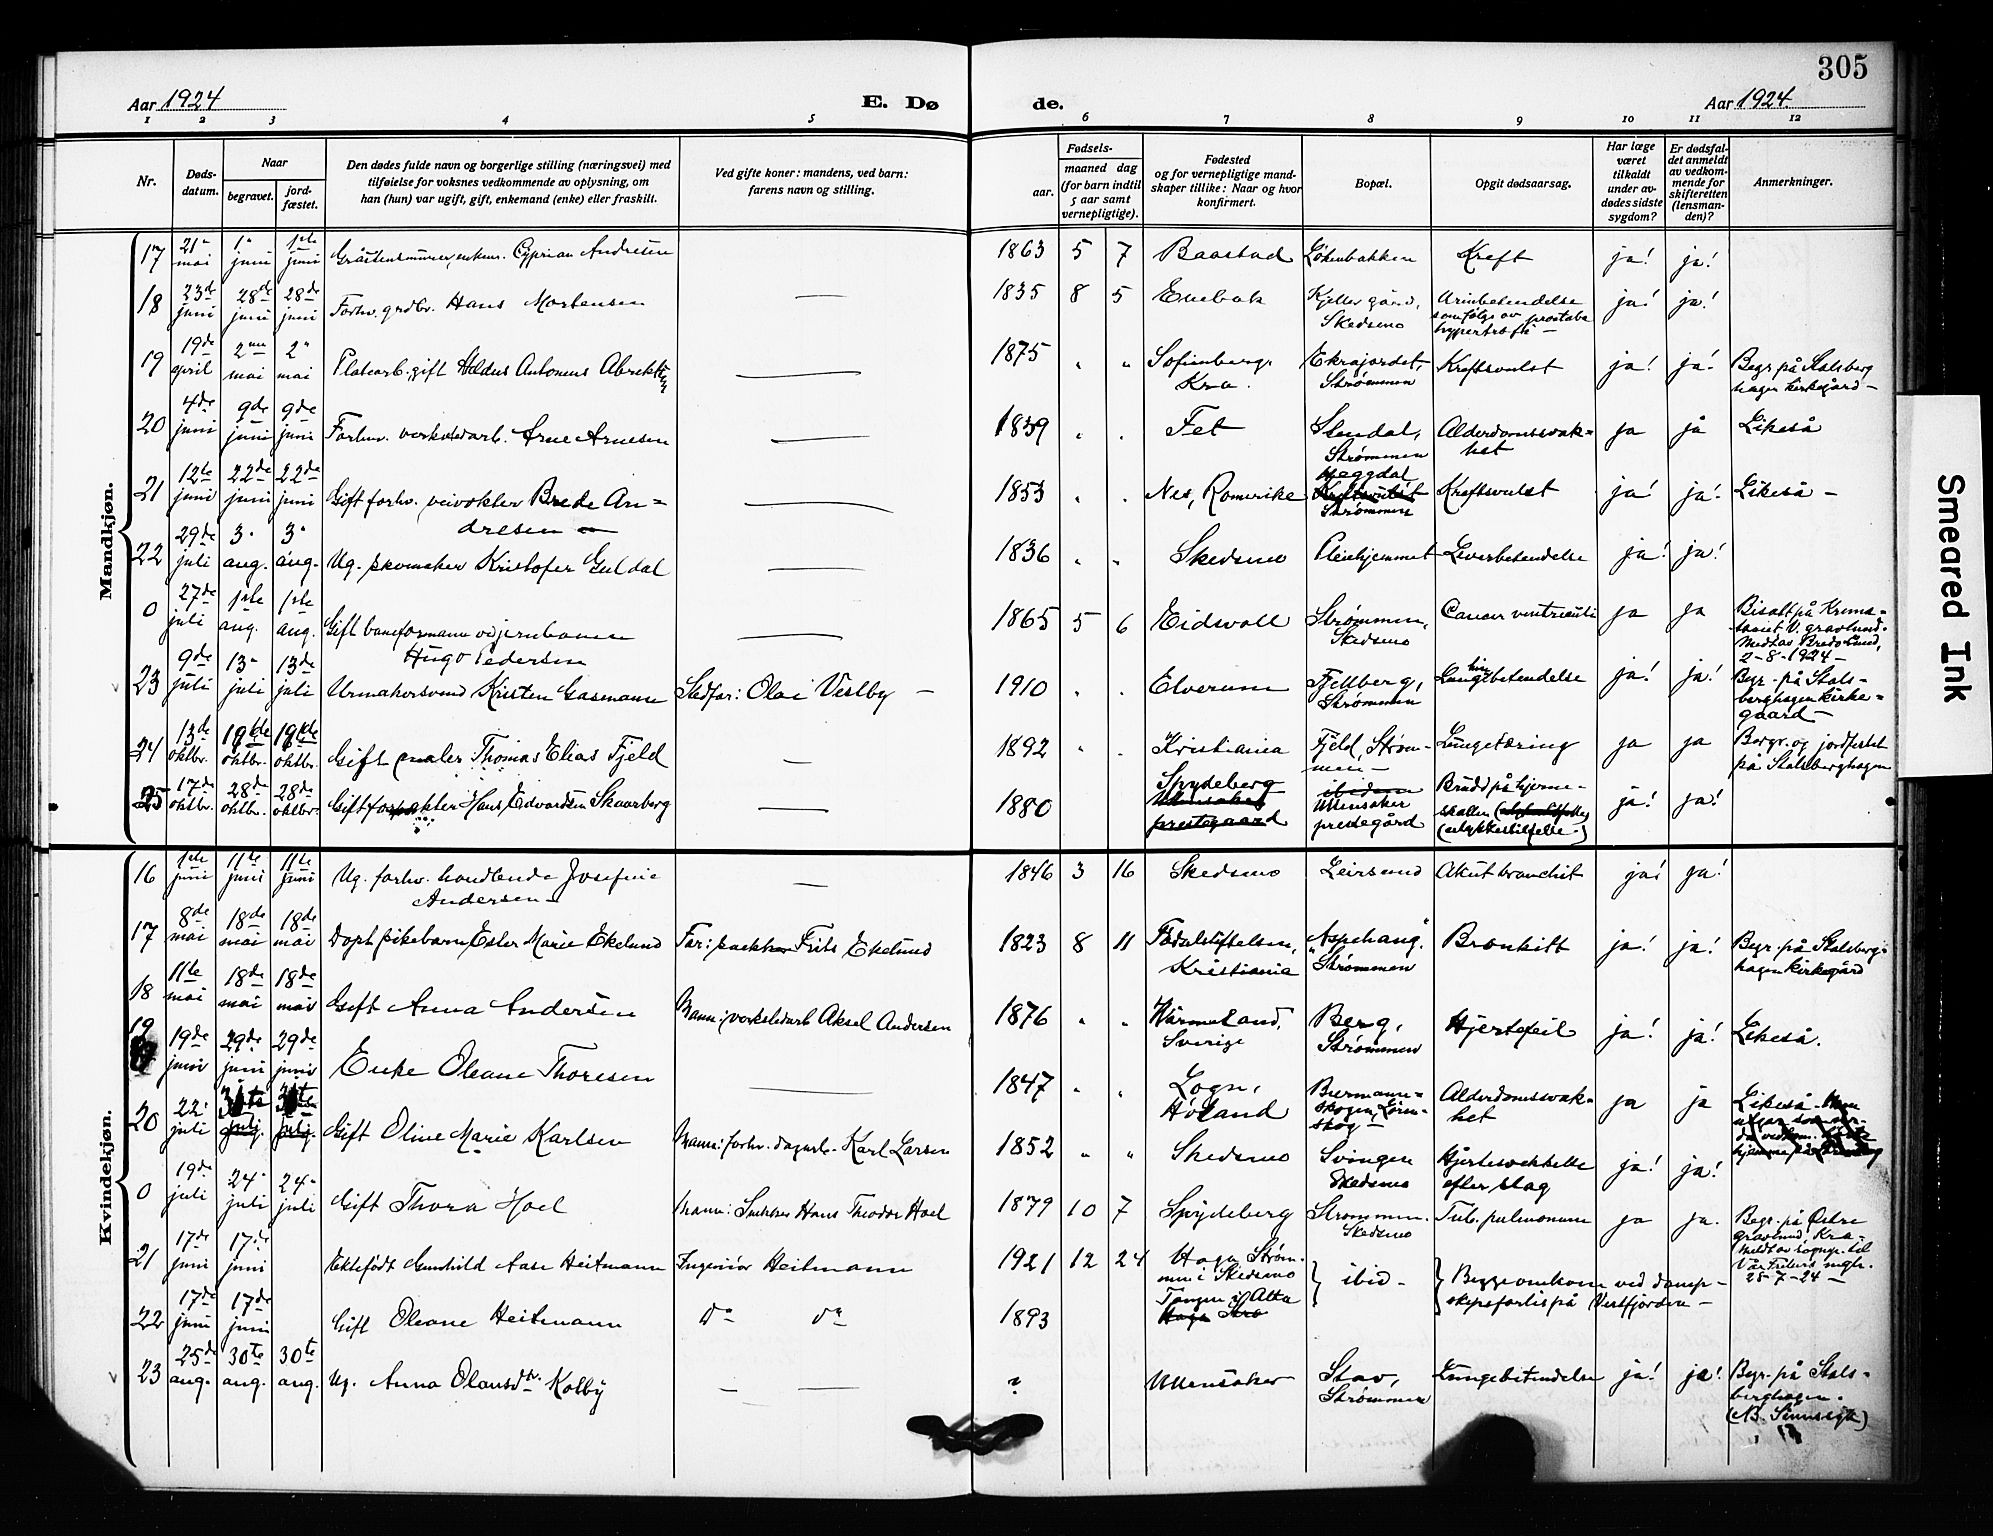 305
Aar 1924
E. Dø
de.
Aar 1924.
1 2 3 4 5 6 7 8 9 10 11 12
Nr.
Døds-
datum.
Naar
begravet.
jord-
fæstet.
Den dødes fulde navn og borgerlige stilling (næringsvei) med
tilføielse for voksnes vedkommende av oplysning, om
han (hun) var ugift, gift, enkemand (enke) eller fraskilt.
Ved gifte koner: mandens, ved barn:
farens navn og stilling.
Fødsels-
aar.
maaned dag
(for barn indtil
5 aar samt
vernepligtige).
Fødested
og for vernepligtige mand-
skaper tillike: Naar og hvor
konfirmert.
Bopæl.
Opgit dødsaarsag.
Har læge
været
tilkaldt
under av-
dødes sidste
sygdom?
Er dødsfal-
det anmeldt
av vedkom-
mende for
skifteretten
(lensman-
den)?
Anmerkninger.
Mandkjøn.
17 21 mai 1 juni 1ste juni Gråstensmurer, enkem. Cyprian Andresen 1863 5 7 Baastad Løkenbakken Kreft ja! ja!
18 23de juni 28de juni 28de juni Forhv. grdbr. Hans Mortensen — 1835 8 5 Enebak Kjeller gård, Skedsmo Urinbetendelse som følge av prostata hypertrofi — ja! ja!
19 19de april 2 mai 2 mai Platearb. gift Antonius — 1875 " " Sofienberg, Kra. Ekrajordet, Strømmen Kreftsvulst ja! ja! Begr. på Stalsberg hagen kirkegård —
20 4de juni 9de juni 9de juni Forhv. verkstedarb. Arne Arnesen — 1839 " " Fet Stendal, Strømmen Alderdomssvak= het ja ja Likeså
21 12te juni 22de juni 22de juni Gift forhv. veivokter Brede An= dresen — 1853 " " Nes, Romerike Strømmen Kreftsvulst ja! ja! Likeså —
22 29de juli 3 aug. 3 aug. Ug. skomaker Kristofer Guldal — 1836 " " Skedsmo Pleiehjemmet Leverbetendelse ja! ja!
0 27de juli 1ste aug. 1ste aug. Gift baneformann ved jernbanen Hugo Pedersen — 1865 5 6 Eidsvoll Strømmen, Skedsmo Cancer ventriculi ja ja Bisatt på Krema= toriet V. gravlund. 2-8-1924 —
23 9de juli 13 juli 13de juli Urmakersvend Kristen Gasmann Stedfar: Olai Vestby — 1910 " " Elverum Fjellberg, Strømmen Lungehinbetendelse ja! ja! Begr. på Stals= berghagen kirke= gaard —
24 13de oktbr. 19de oktbr. 19de oktbr. Gift maler Thomas Elias Fjeld — 1892 " " Kristiania Fjeld, Strøm= men — Lungetæring ja ja Begr. og jordfestet på Stalsberghagen
25 17de oktbr. 28de oktbr. 28de oktbr. Gift forpakter Hans Edvardsen Skaarberg — 1880 Spydeberg Ullensaker prestegaard ibidem Ullensaker prestegård Brudd på hjerne= skallen (ulykkestilfelle) ja! ja!
Kvindekjøn.
16 1ste juni 11te juni 11te juni Ug. forhv. handlende Josefine Andersen — 1846 3 16 Skedsmo Leirsund Akut bronchit ja! ja!
17 8de mai 18de mai 18de mai Døpt pikebarn Ester Marie Ekelund Far: Frits Ekelund 1823 8 11 Fødselstiftelsen, Kristiania Aspehaug, Strømmen Bronkitt ja! ja! Begr. på Stalsberg= hagen kirkegård
18 11te mai 18de mai 18de mai Gift Anna Andersen Mann: verkstedarb Aksel Andersen 1876 " " Värmeland, Sverige Berg, Strømmen Hjertefeil ja! ja! Likeså.
19 19de juni 29de juni 29de juni Enke Oleane Thoresen — 1847 " " Løgn, Høland skogen, Løren= skog — Alderdomssvak= het ja ja Likeså
20 22 juli juli. juli. Gift Oline Marie Karlsen Mann: forhv. dagarb. Karl Larsen 1852 " " Skedsmo Svingen Skedsmo Hjertesvekkelse efter slag ja! ja!
0 19de juli 24 juli 24 juli Gift Thora Hoel Mann: Snekker Hans Theodor Hoel 1879 10 7 Spydeberg Strømmen. Skedsmo Tub. pulmonum ja ja. Begr. på Østre gravlund, Kra — Meldt av sognepr. til Vår Frelsers mgh. 25-7-24 —
21 17de juni 17de juni Ektefødt Gunhild Aase Heitmann Ingeniør Heitmann 1921 12 24 Haga, Strøm= men i Skedsmo } ibid — } Begge omkom ved damp= skipsforlis på Vestfjorden —
22 17de juni 17de juni Gift Oleane Heitmann Do Do 1893 Tangen i Alta
23 25de aug. 30te aug. 30te aug. Ug. Anna Olausdtr. Kolby — — ? Ullensaker Stav, Strømmen Lungebetendelse ja! ja! Begr. på Stals= berghagen.
Smeared Ink